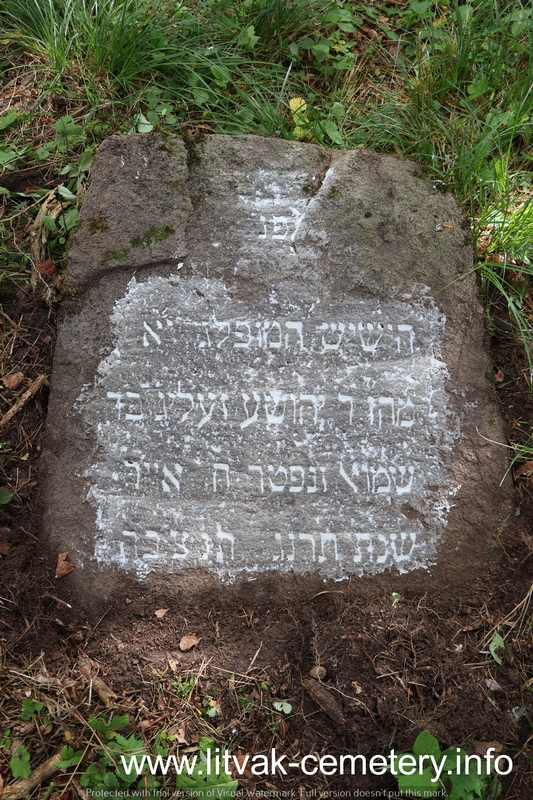 פנ
הישיש המופלג י״א
מהור ר יהושע זעליג בר
שמוא ונפטר ח אייר
שנת תרנג תנצבה
www.litvak-cemetery.info
Protected with trial version of Visual Watermark. Full version doesn't put this mark.